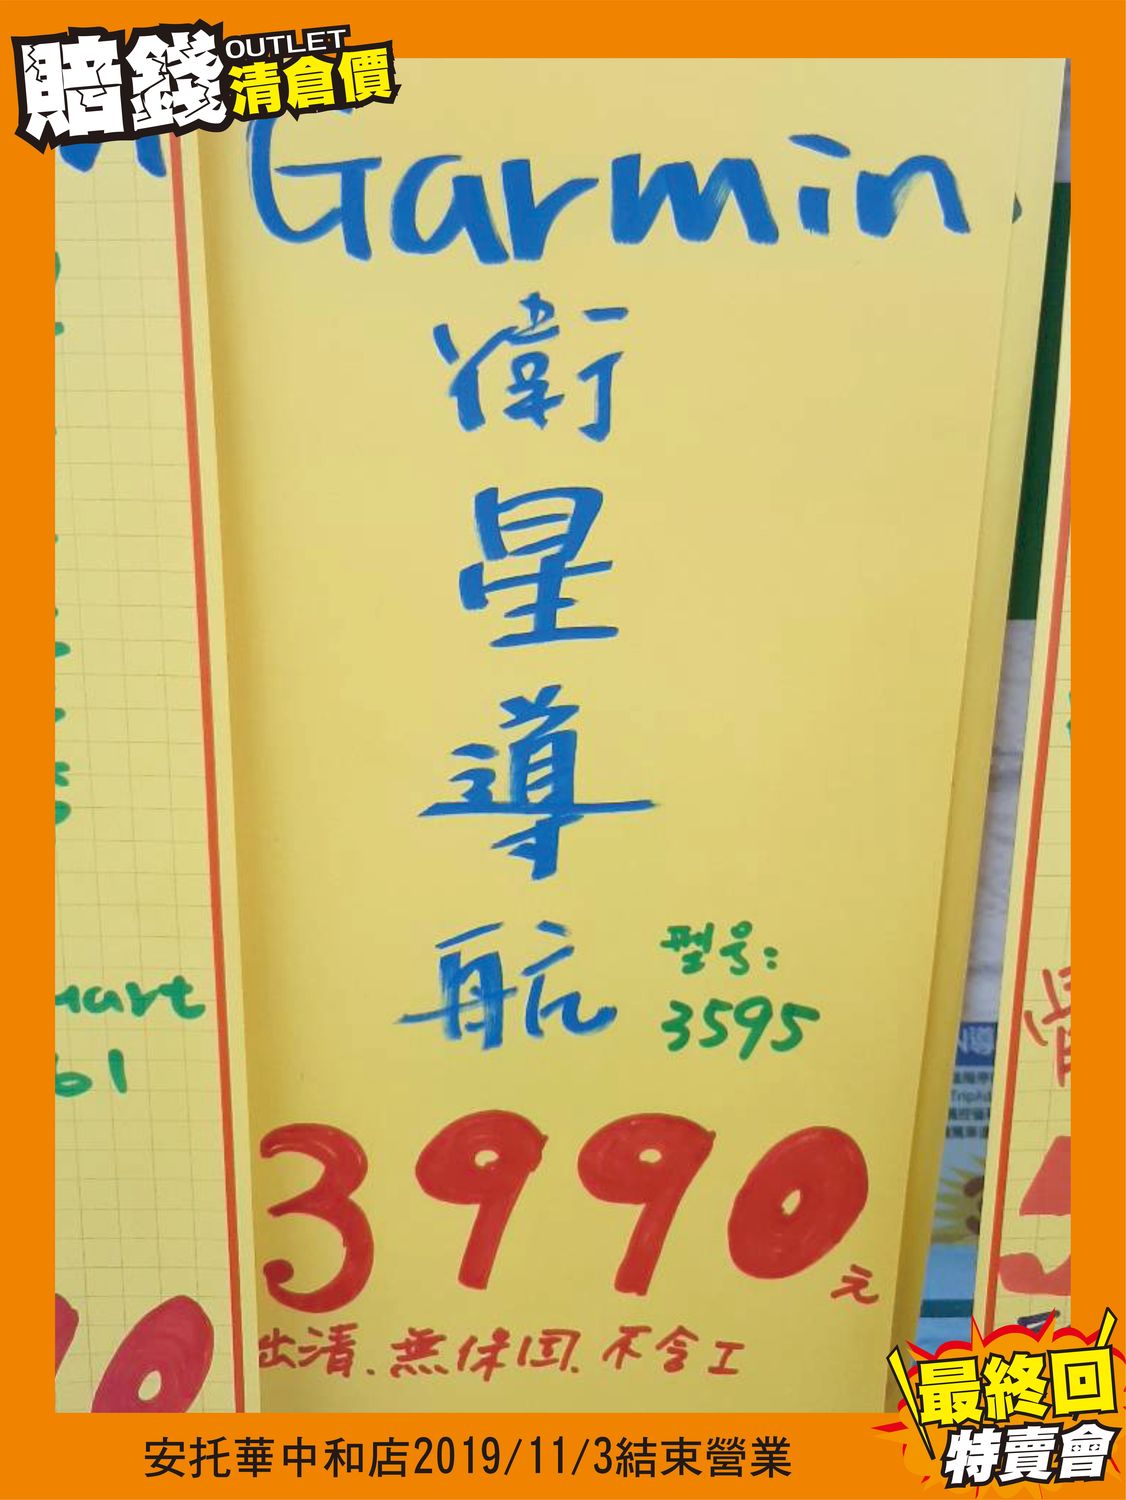 賠錢
OUTLET
清倉價
Garmin
衛星導航
型号:
3595
3990元
出清、無保固、不含工
art
61
安托華中和店2019/11/3結束營業
最終回
特賣會